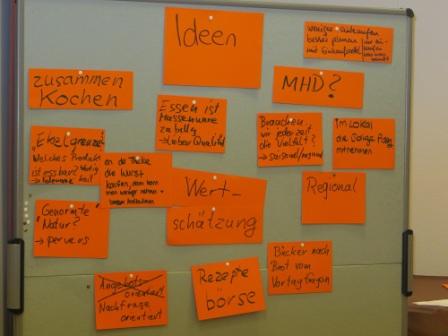 Ideen
weniger einkaufen
besser planen
und Einkaufszettel
zusammen
Kochen
MHD?
Essen ist
Massenware
zu billig
→ lieber Qualität
Brauchen
wir jederzeit
die Vielfalt?
→ saisonal/regional
im Lokal
die
mitnehmen
"Ekelgrenze"
Welches Produkt
ist essbar?
an der Theke
die Wurst
kaufen, dann kann
man weniger nehmen +
besser
Wert-
schätzung
Regional
Genormte
"Natur"?
→ pervers
Bäcker nach
Brot vom
Vortag fragen
Angebots-
orientiert
Nachfrage
orientiert
Rezepte
börse